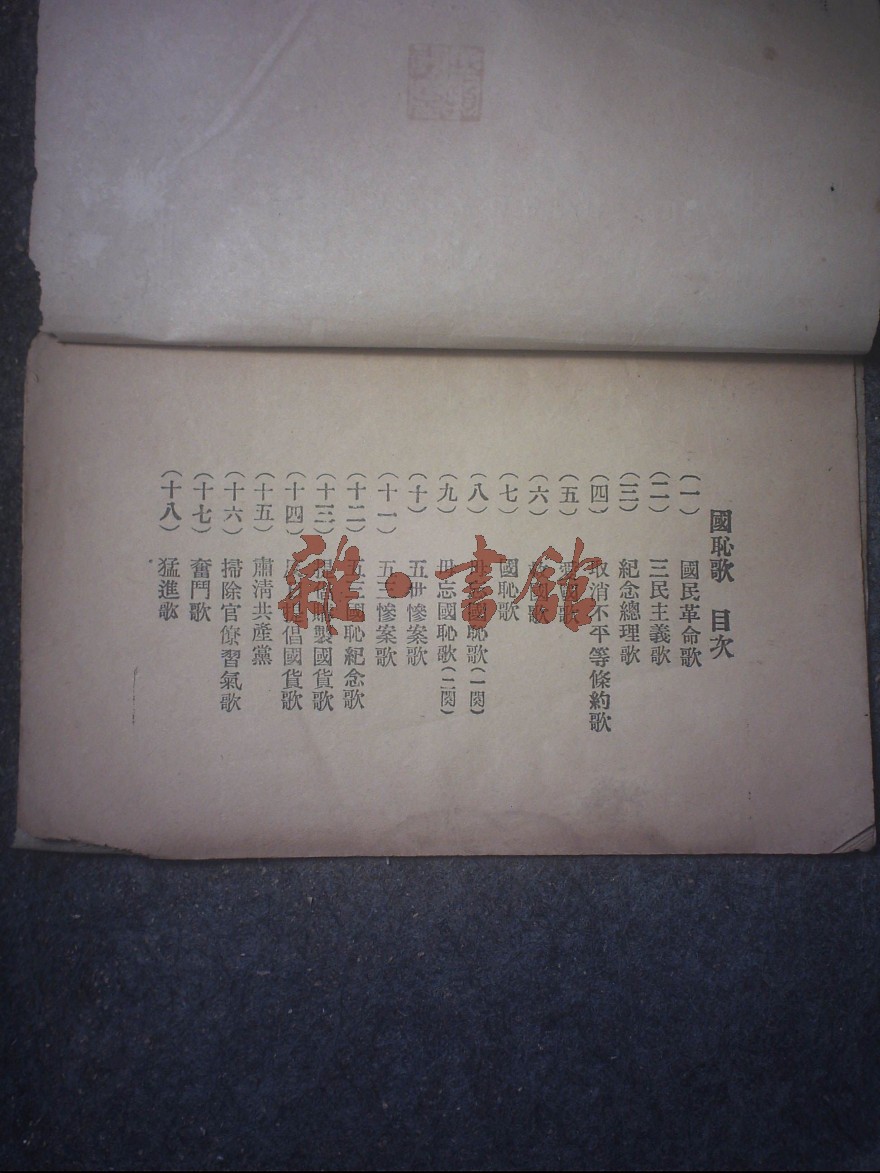 國恥歌 目次
(一) 國民革命歌
(二) 三民主義歌
(三) 紀念總理歌
(四) 取消不平等條約歌
(五) 愛國歌
(六) 國歌
(七) 國恥歌
(八) 毋忘國恥歌(一闋)
(九) 毋忘國恥歌(二闋)
(十) 五卅慘案歌
(十一) 五三慘案歌
(十二) 五三國恥紀念歌
(十三) 製國貨歌
(十四) 提倡國貨歌
(十五) 肅清共產黨
(十六) 掃除官僚習氣歌
(十七) 奮鬥歌
(十八) 猛進歌
雜·書館